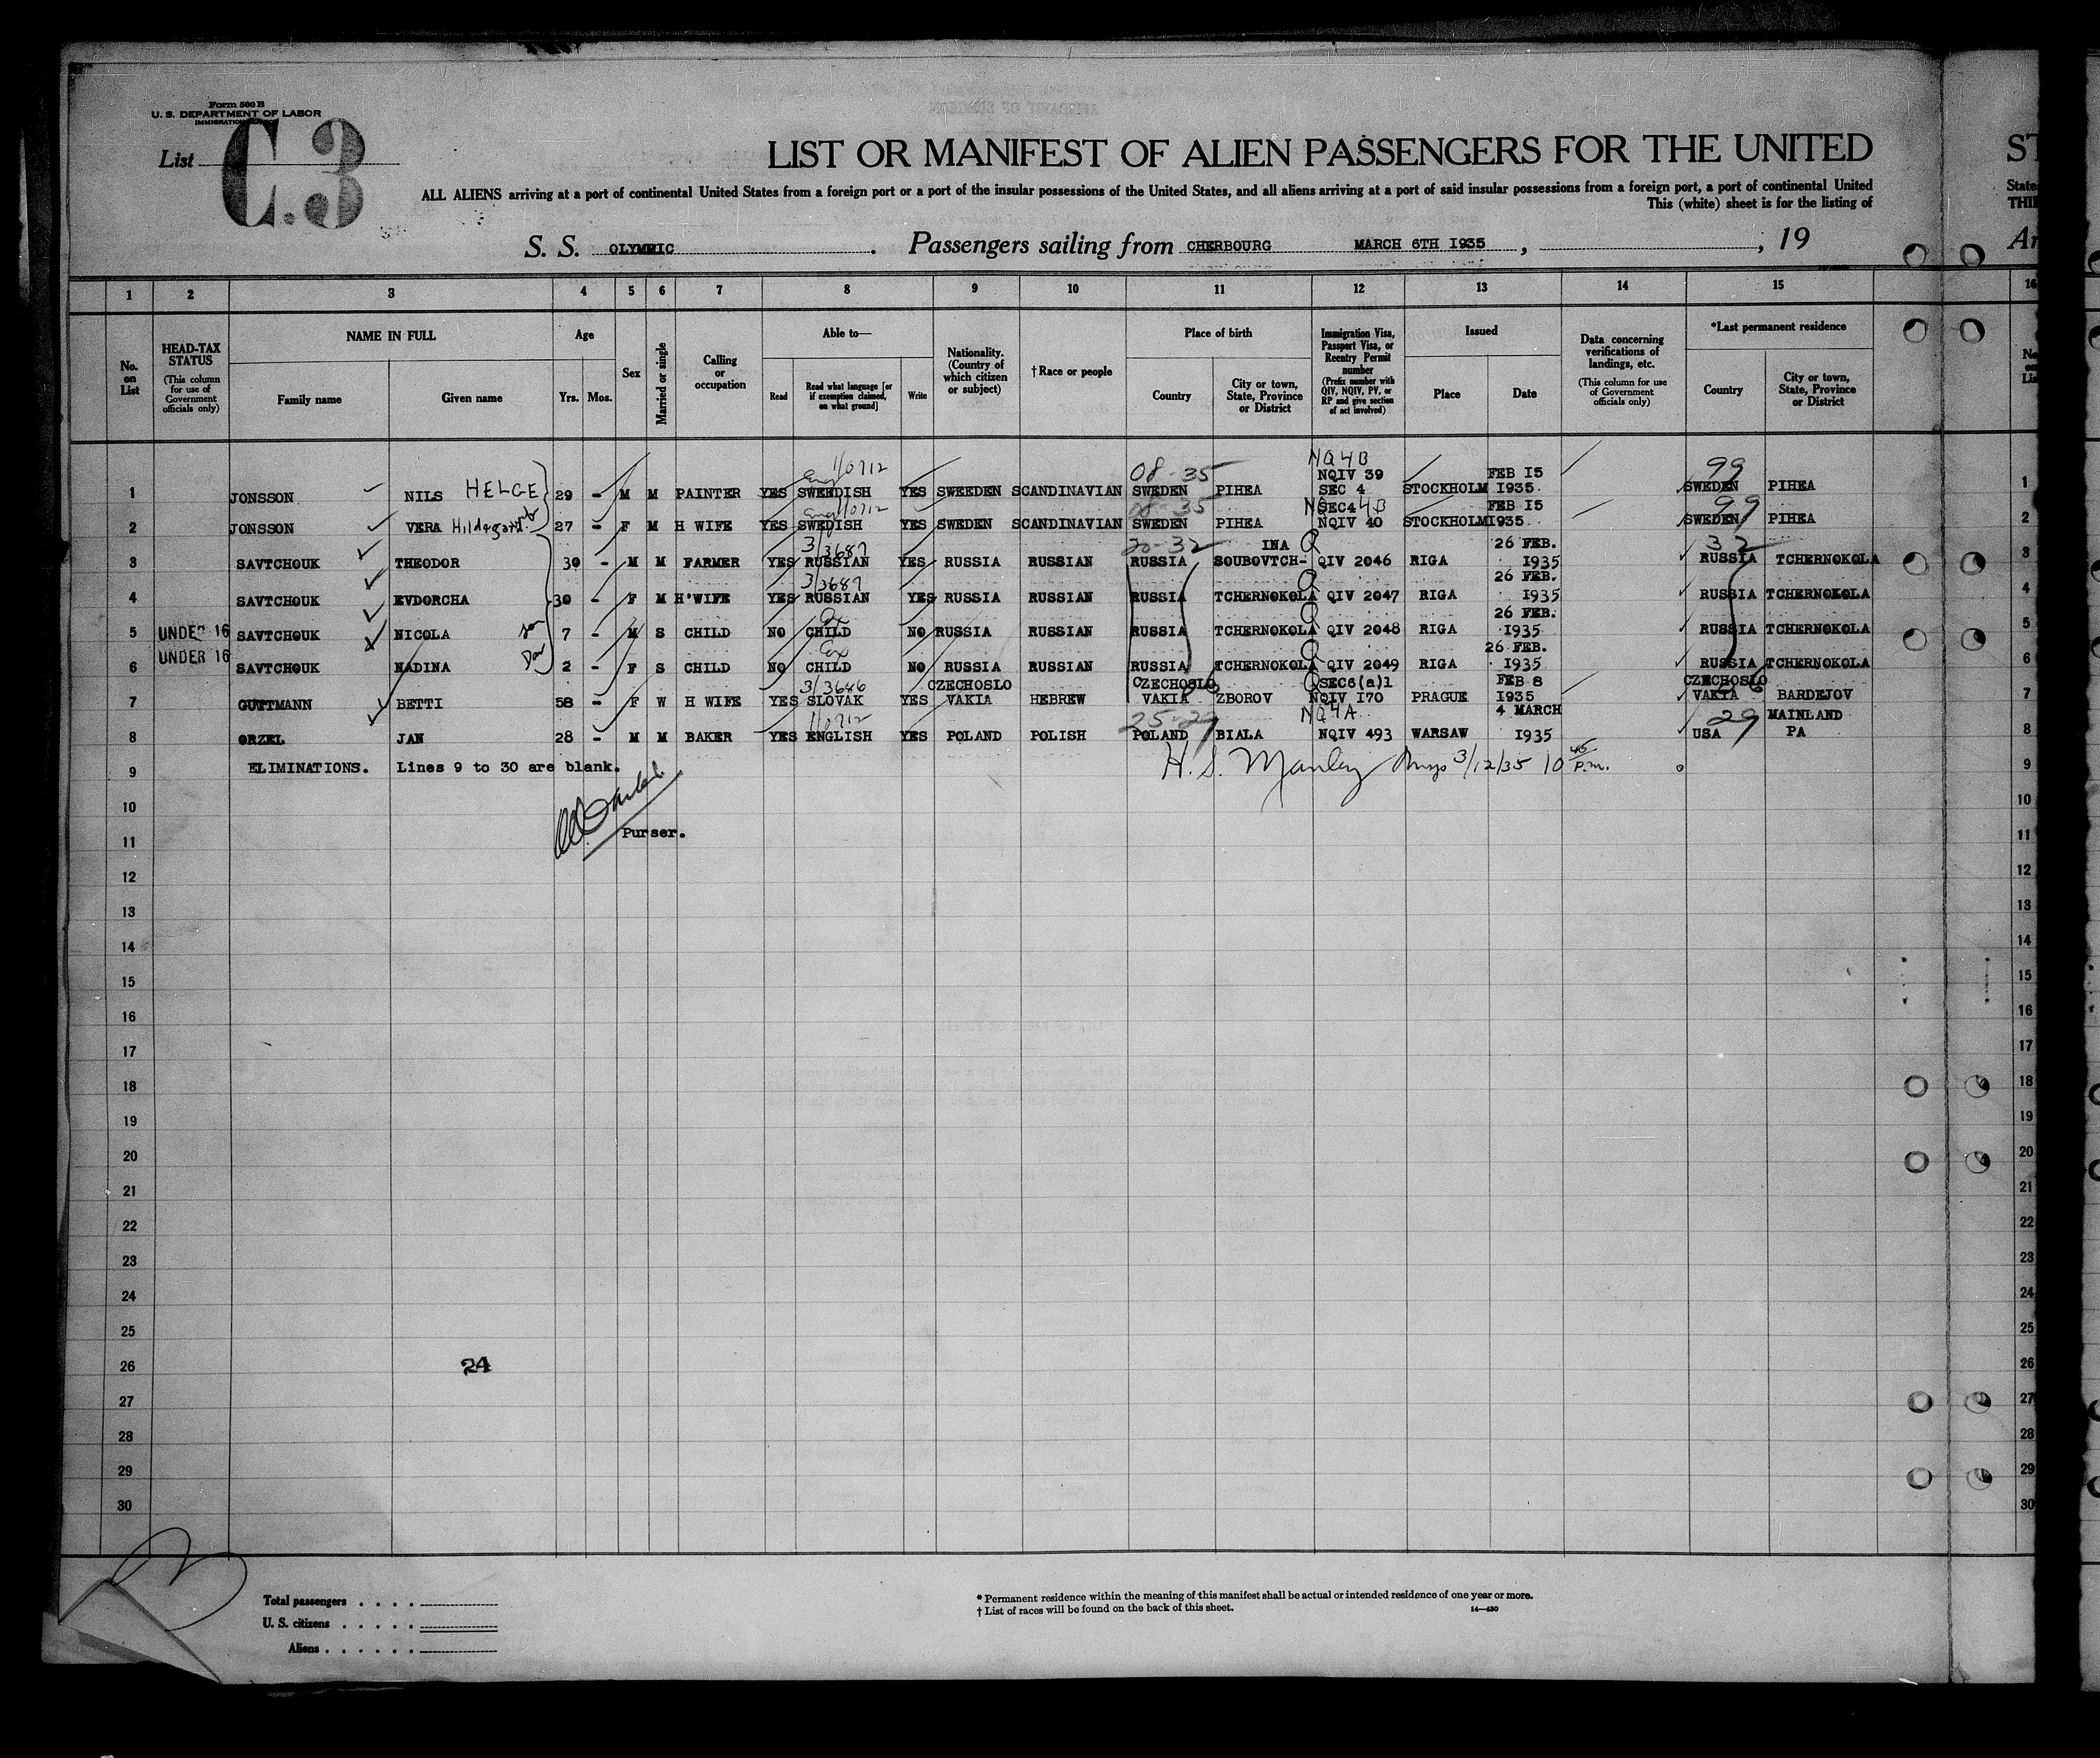 Form 500 B
U. S. DEPARTMENT OF LABOR
IMMIGRATION
List C.3
LIST OR MANIFEST OF ALIEN PASSENGERS FOR THE UNITED ST
ALL ALIENS arriving at a port of continental United States from a foreign port or a port of the insular possessions of the United States, and all aliens arriving at a port of said insular possessions from a foreign port, a port of continental United State
This (white) sheet is for the listing of THI
S. S. OLYMPIC . Passengers sailing from CHERBOURG MARCH 6TH 1935 , ; 19 Ar
1 2 3 4 5 6 7 8 9 10 11 12 13 14 15 16
No. on List
HEAD-TAX STATUS
(This column for use of Government officials only)
NAME IN FULL
Family name
Given name
Age
Yrs. Mos.
Sex
Married or single
Calling or occupation
Able to—
Read
Read what language [or if exemption claimed, on what ground]
Write
Nationality. (Country of which citizen or subject)
† Race or people
Place of birth
Country
City or town, State, Province or District
Immigration Visa, Passport Visa, or Reentry Permit number
(Prefix number with QIV, NQIV, PV, or RP and give section of act involved)
Issued
Place
Date
Data concerning verifications of landings, etc.
(This column for use of Government officials only)
*Last permanent residence
Country
City or town, State, Province or District
1/0712 08-35 NQ4B 99
1 JONSSON NILS HELGE 29 - M M PAINTER YES SWEEDISH YES SWEEDEN SCANDINAVIAN SWEDEN PIHEA NQIV 39 SEC 4 STOCKHOLM FEB I5 I935 SWEDEN PIHEA 1
eng 1/0712 08-35 NQ 4B 99
2 JONSSON VERA Hildegard 27 - F M H WIFE YES SWEDISH YES SWEDEN SCANDINAVIAN SWEDEN PIHEA SEC4 NQIV 40 STOCKHOLM FEB I5 I935 SWEDEN PIHEA 2
3/3687 20-32 Q 32
3 SAVTCHOUK THEODOR 30 - M M FARMER YES RUSSIAN YES RUSSIA RUSSIAN RUSSIA SOUBOVTCH-INA QIV 2046 RIGA 26 FEB. I935 RUSSIA TCHERNOKOLA 3
3/3687 Q
4 SAVTCHOUK EVDORCHA 30 - F M H'WIFE YES RUSSIAN YES RUSSIA RUSSIAN RUSSIA TCHERNOKOLA QIV 2047 RIGA 26 FEB. I935 RUSSIA TCHERNOKOLA 4
5 UNDER 16 SAVTCHOUK NICOLA son 7 - M S CHILD NO CHILD NO RUSSIA RUSSIAN RUSSIA TCHERNOKOLA Q QIV 2048 RIGA 26 FEB. I935 RUSSIA TCHERNOKOLA 5
6 UNDER 16 SAVTCHOUK NADINA Dau 2 - F S CHILD NO CHILD NO RUSSIA RUSSIAN RUSSIA TCHERNOKOLA Q QIV 2049 RIGA 26 FEB. I935 RUSSIA TCHERNOKOLA 6
3/3686
7 GUTTMANN BETTI 58 - F W H WIFE YES SLOVAK YES CZECHOSLO VAKIA HEBREW CZECHOSLO VAKIA ZBOROV Q SEC6(a)1 NQIV I70 PRAGUE FEB 8 I935 CZECHOSLO VAKIA BARDEJOV 7
1/0712 25-29 NQ4A 29
8 ORZEL JAN 28 - M M BAKER YES ENGLISH YES POLAND POLISH POLAND BIALA NQIV 493 WARSAW 4 MARCH I935 USA MAINLAND PA 8
9 ELIMINATIONS. Lines 9 to 30 are blank. H. S. Manley 3/12/35 10 45 P.m. 9
10 10
11 Purser. 11
12 12
13 13
14 14
15 15
16 16
17 17
18 18
19 19
20 20
21 21
22 22
23 23
24 24
25 25
26 24 26
27 27
28 28
29 29
30 30
Total passengers . . . .
U. S. citizens . . . . .
Aliens . . . . . .
* Permanent residence within the meaning of this manifest shall be actual or intended residence of one year or more.
† List of races will be found on the back of this sheet. 14—420